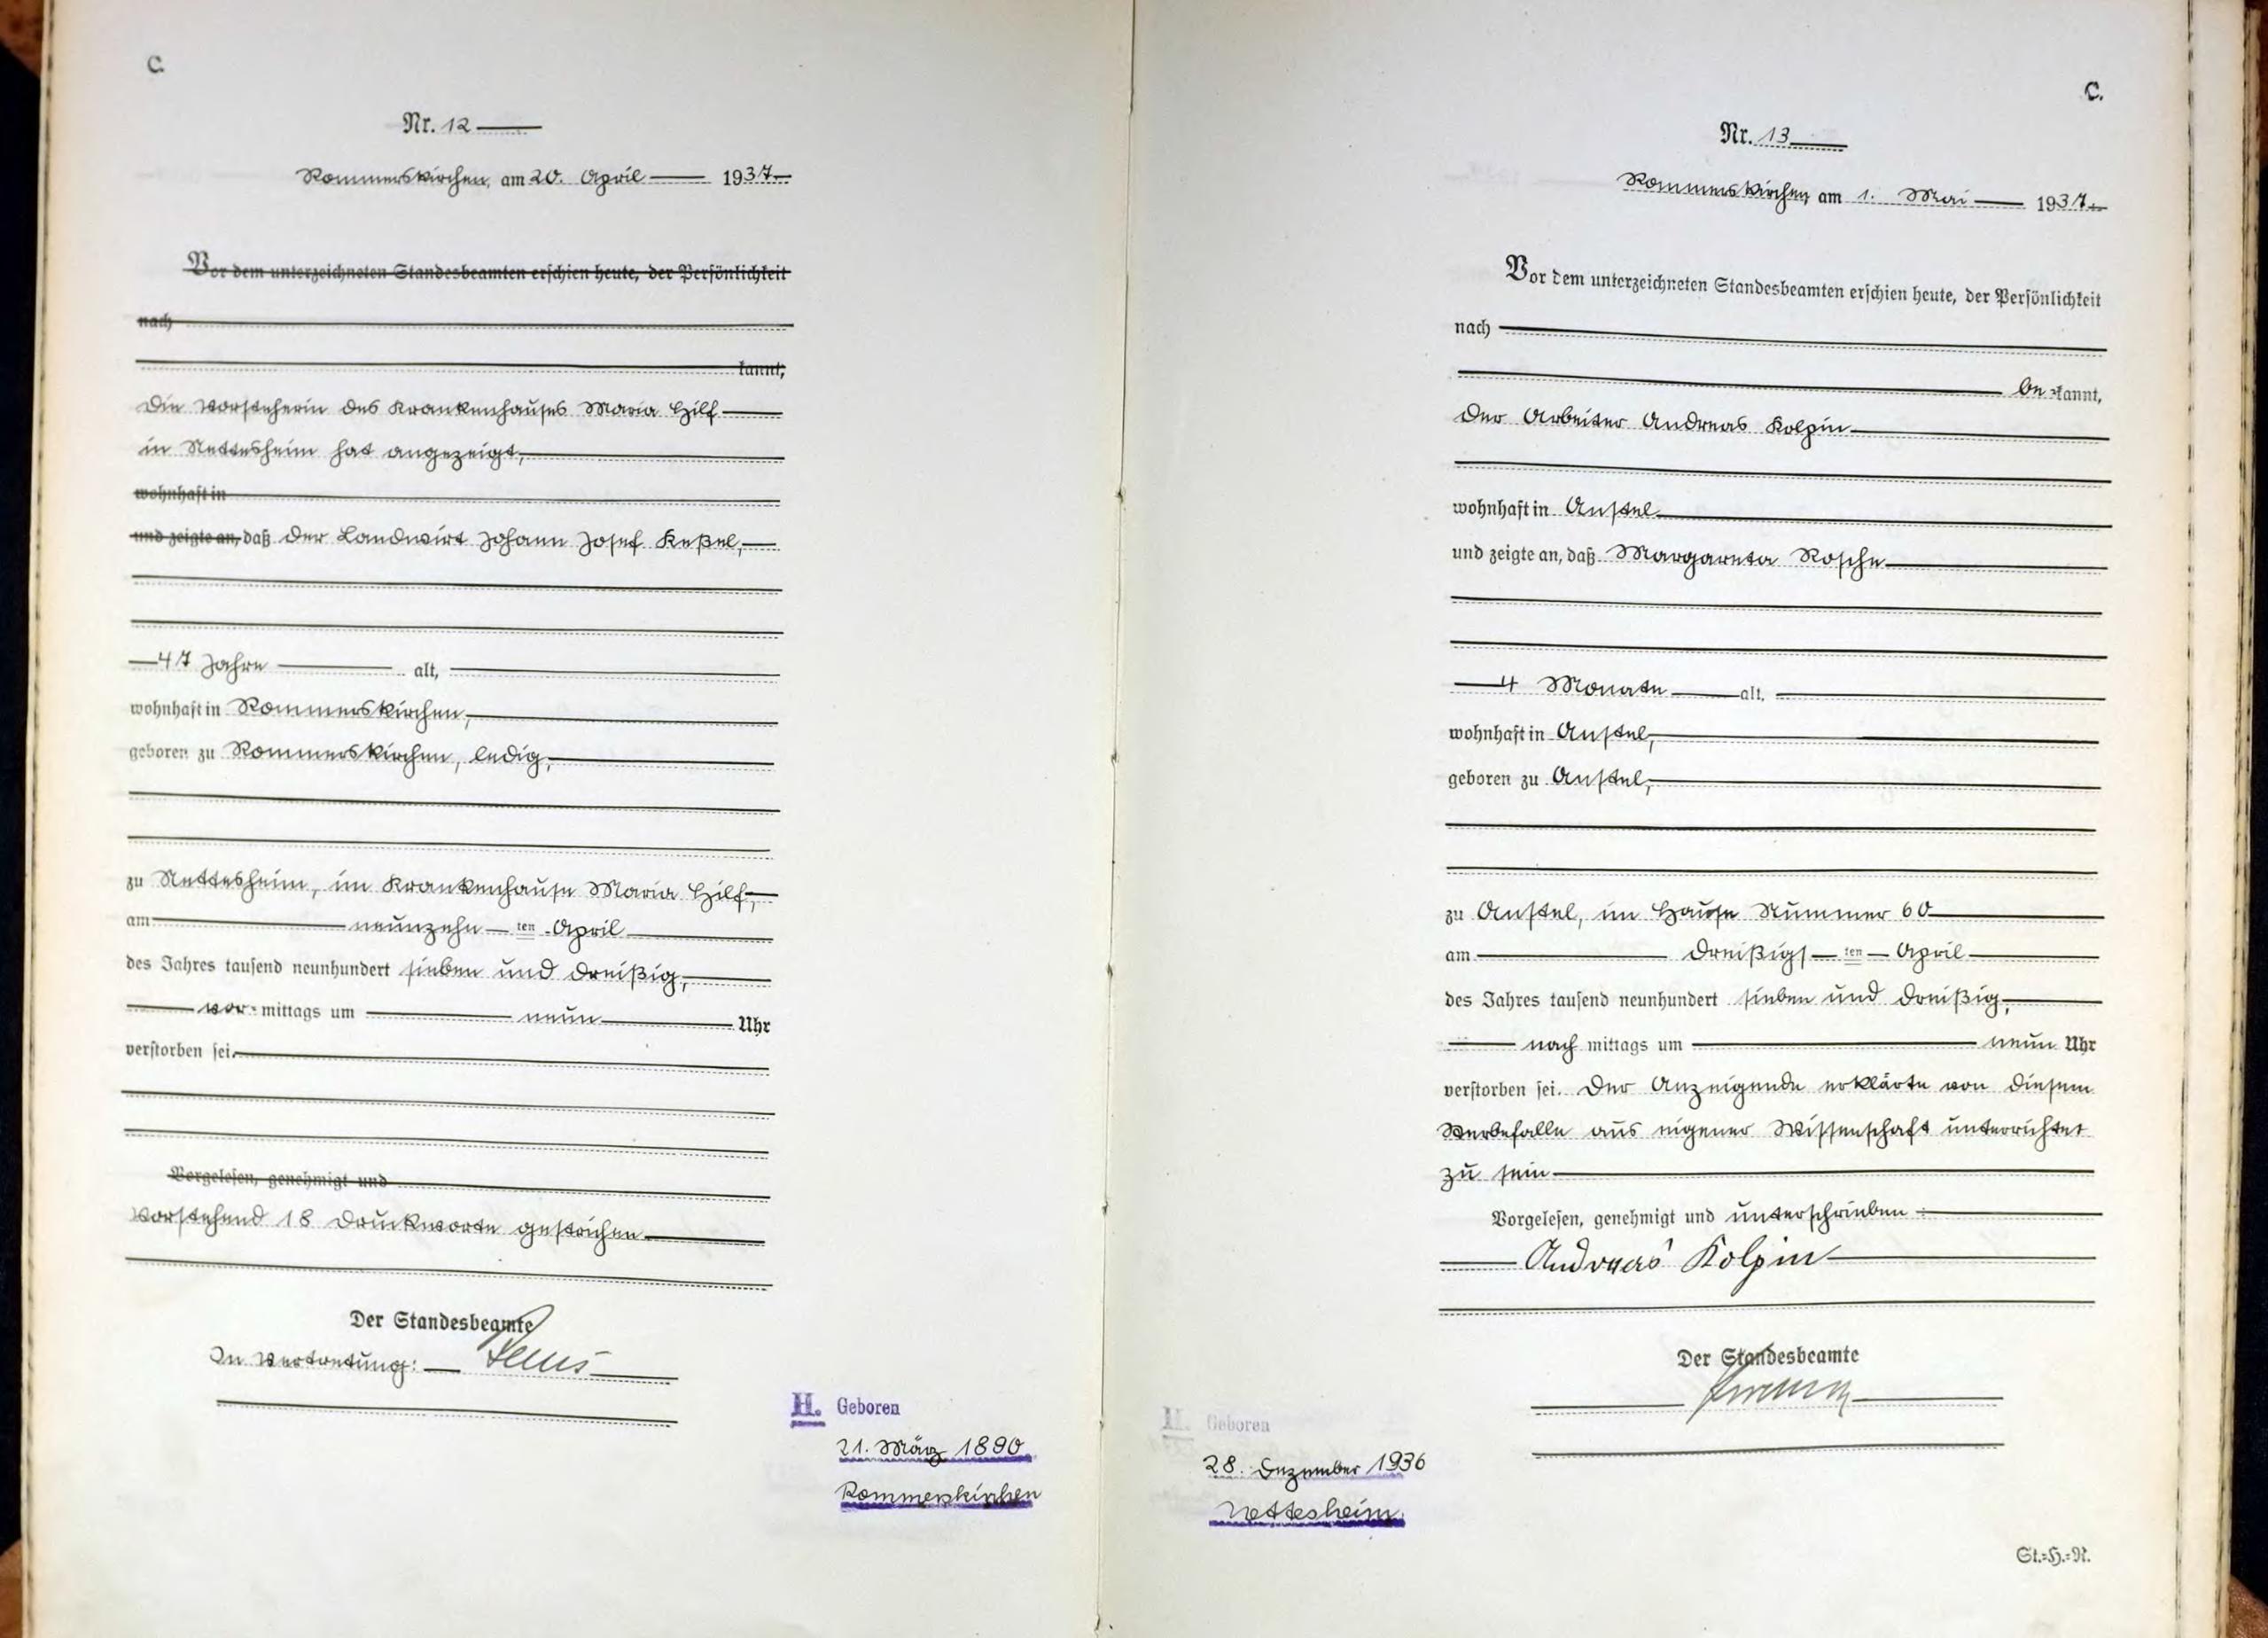 C.
Nr. 12
Rommerskirchen, am 20. April 1937
Vor dem unterzeichneten Standesbeamten erschien heute, der Persönlichkeit
nach
kannt,
die Vorsteherin des Krankenhauses Maria Hilf
in Nettesheim hat angezeigt,
wohnhaft in
und zeigte an, daß der Landwirt Johann Josef Keßel,
47 Jahre alt,
wohnhaft in Rommerskirchen,
geboren zu Rommerskirchen, ledig,
zu Nettesheim, im Krankenhause Maria Hilf,
am neunzehn ten April
des Jahres tausend neunhundert sieben und dreißig,
vor mittags um neun Uhr
verstorben sei.
Vorgelesen, genehmigt und
Vorstehend 18 Druckworte gestrichen
Der Standesbeamte
In Vertretung:
H. Geboren
21. März 1890
Rommerskirchen
C.
Nr. 13
Rommerskirchen am 1. Mai 1937
Vor dem unterzeichneten Standesbeamten erschien heute, der Persönlichkeit
nach
be kannt,
der Arbeiter Andreas Kolpin
wohnhaft in Anstel
und zeigte an, daß Margareta Rosche
4 Monate alt,
wohnhaft in Anstel,
geboren zu Anstel,
zu Anstel, im Hause Nummer 60
am dreißigs ten April
des Jahres tausend neunhundert sieben und dreißig,
nach mittags um neun Uhr
verstorben sei. Der Anzeigende erklärte von diesem
Sterbefalle aus eigener Wissenschaft unterrichtet
zu sein
Vorgelesen, genehmigt und unterschrieben
Andreas Kolpin
Der Standesbeamte
H. Geboren
28. Dezember 1936
Nettesheim
St.=H.=R.